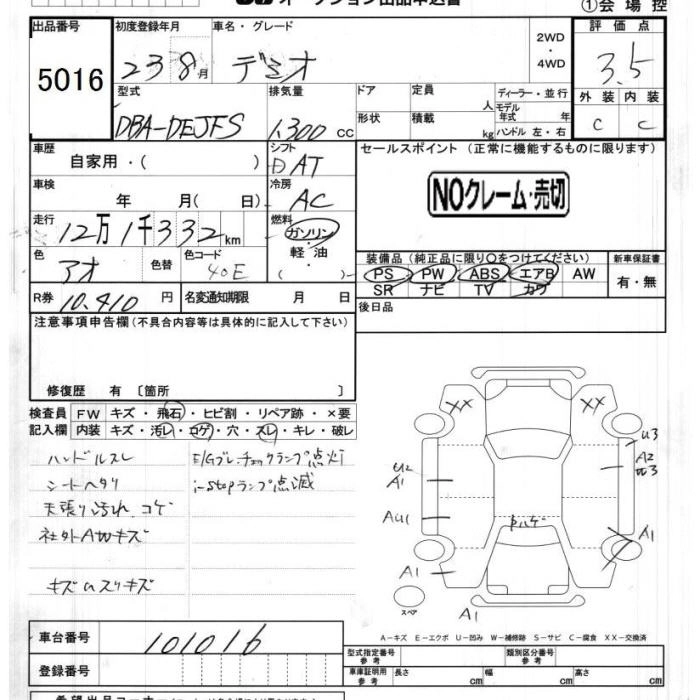 オークション出品申込書
①会場控
出品番号 初度登録年月 車名・グレード 2WD・4WD 評価点
5016 23 8月 デミオ 3.5
型式 排気量 ドア 定員 人 ディーラー・並行 外装 内装
DBA-DEJFS 1,300 CC 形状 積載 kg モデル年式 年 ハンドル 左・右 C C
車歴 自家用・( ) シフト AT セールスポイント (正常に機能するものに限ります)
車検 年 月( 日) 冷房 AC NOクレーム・売切
走行 12万1千332km 燃料 ガソリン・軽油 ( )
色 アオ 色替 色コード 40E 装備品 (純正品に限り○をつけてください) 新車保証書
PS PW ABS エアB AW 有・無
SR ナビ TV カワ
R券 10,410円 名変通知期限 月 日 後日品
注意事項申告欄 (不具合内容等は具体的に記入して下さい)
修復歴 有 〔箇所 〕
検査員 FW キズ・飛石・ヒビ割・リペア跡・×要
記入欄 内装 キズ・汚レ・コゲ・穴・スレ・キレ・破レ
ハンドルスレ E/Gブレーチェックランプ点灯
シートヘタリ i-stopランプ点滅
天張り汚れ、コゲ
社外AWキズ
キズ凹スリキズ
XX XX
U3
A2
U2
A1
AU1
A1
A1
A1
スペア
A-キズ E-エクボ U-凹み W-補修跡 S-サビ C-腐食 XX-交換済
車台番号 101016 型式指定番号 参考 類別区分番号 参考
登録番号 車庫証明用 参考 長さ cm 幅 cm 高さ cm